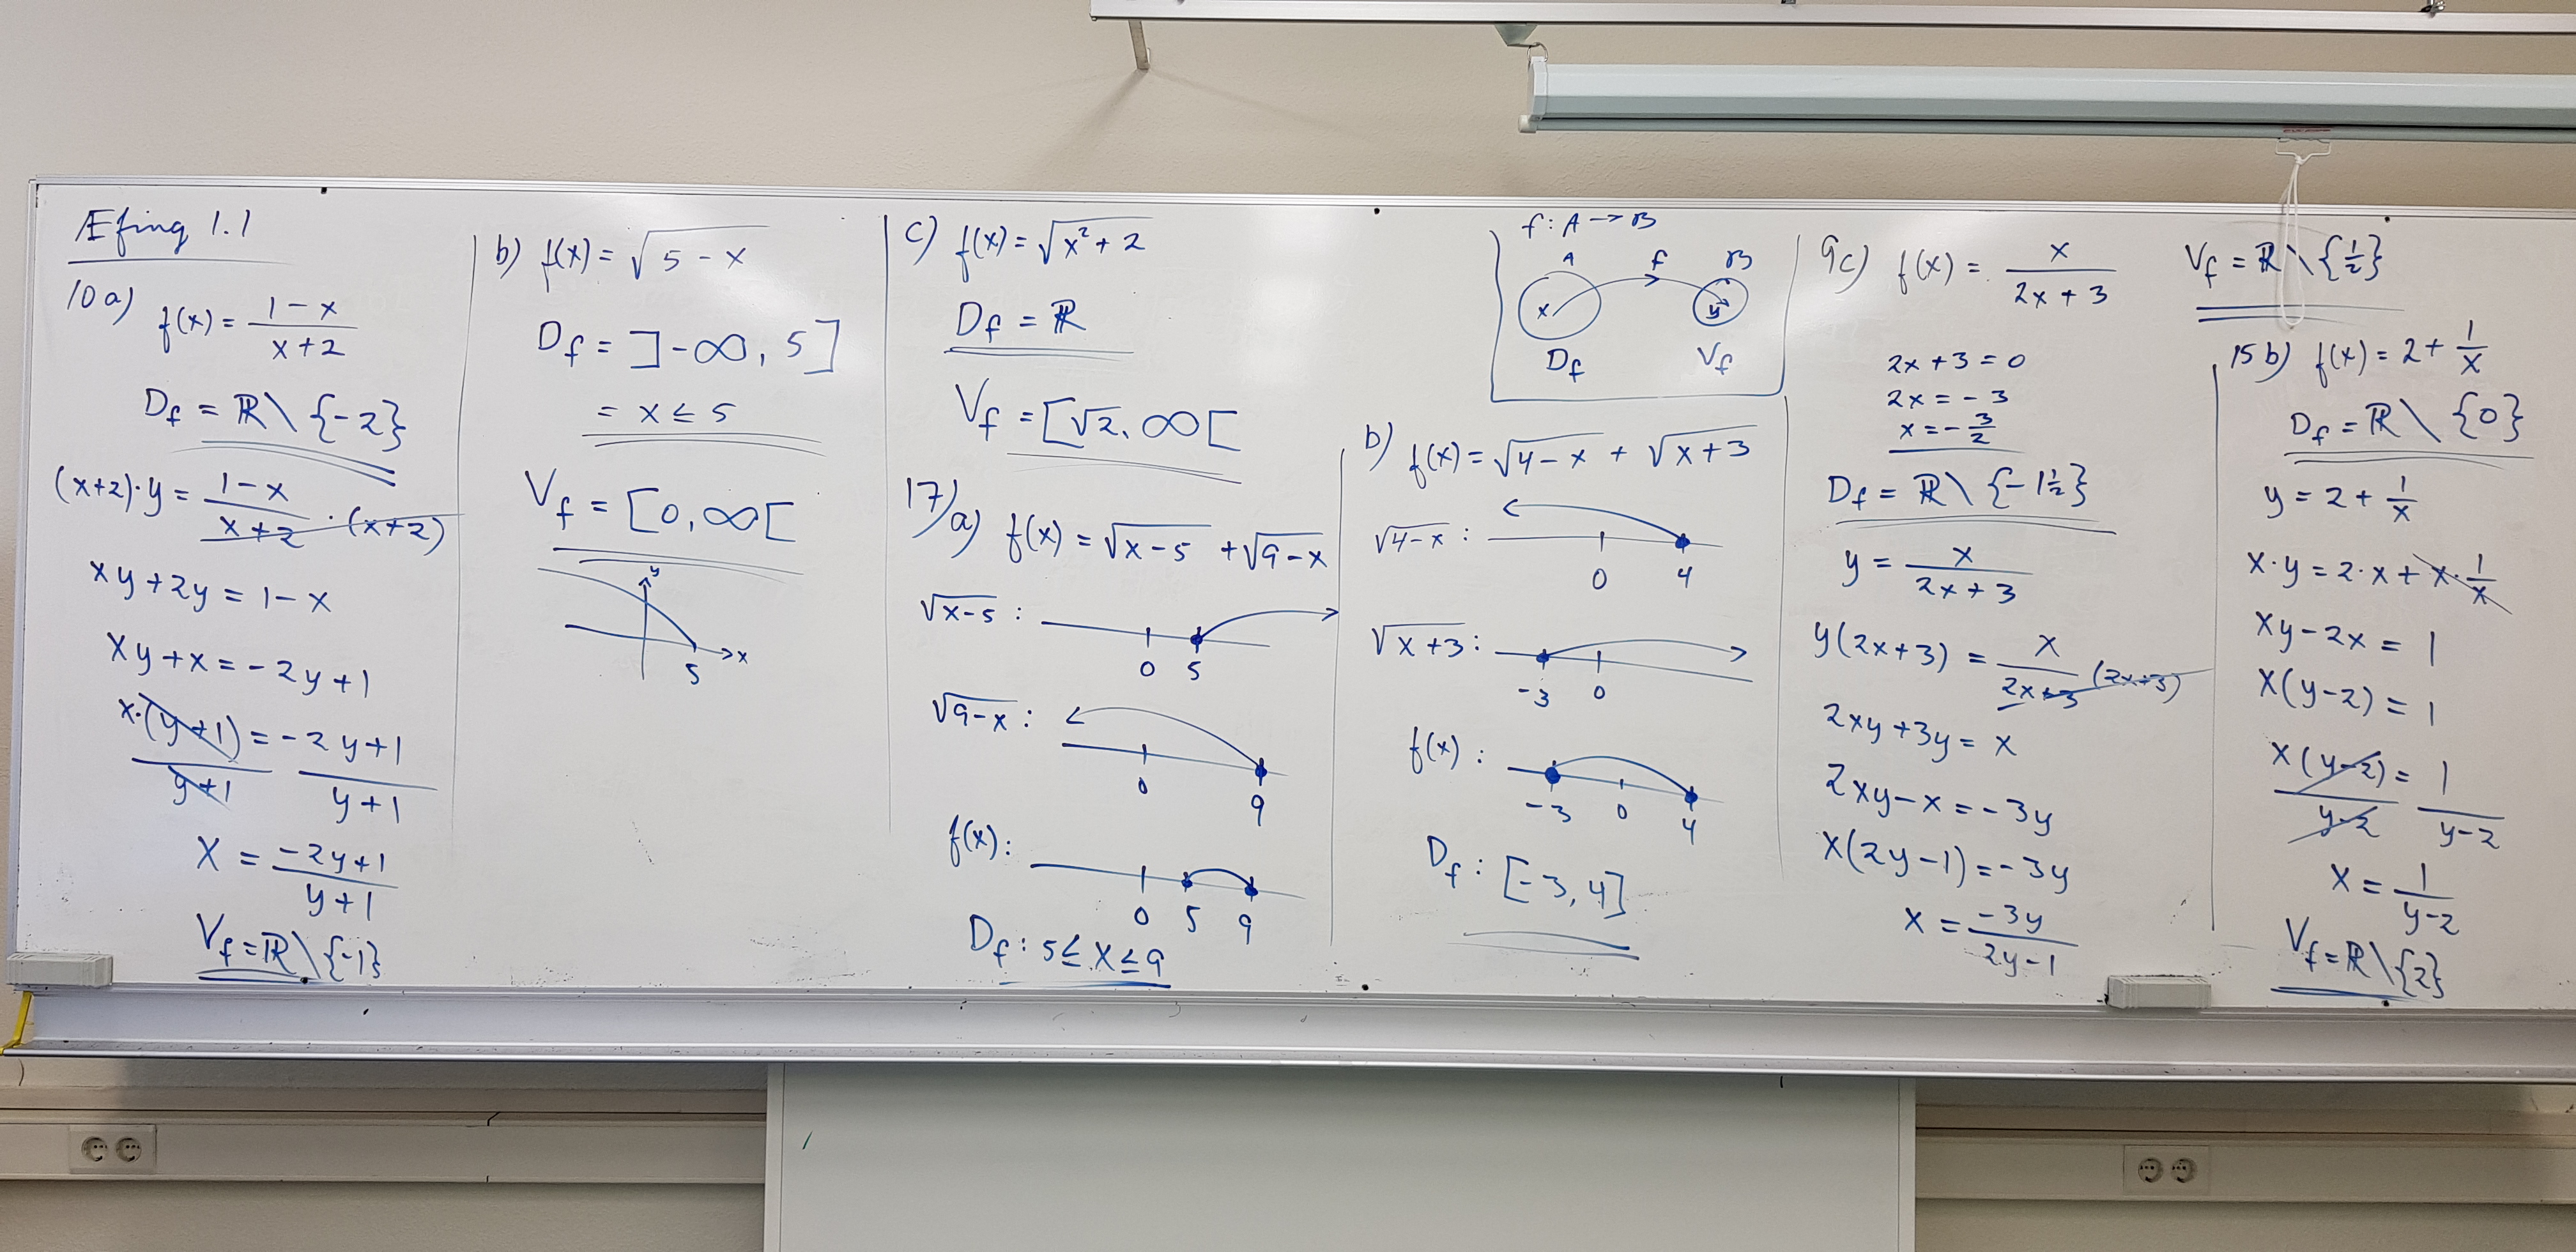 Æfing 1.1
10a) f(x) = \frac{1-x}{x+2}
D_f = ℝ \ {-2}
(x+2)·y = \frac{1-x}{x+2} · (x+2)
xy + 2y = 1 - x
xy + x = -2y + 1
\frac{x·(y+1)}{y+1} = \frac{-2y+1}{y+1}
x = \frac{-2y+1}{y+1}
V_f = ℝ \ {-1}
b) f(x) = √(5 - x)
D_f = ]-∞, 5]
= x ≤ 5
V_f = [0, ∞[
y
x
5
c) f(x) = √(x² + 2)
D_f = ℝ
V_f = [√2, ∞[
17) a) f(x) = √(x-5) + √(9-x)
√(x-5) :
0 5
√(9-x) :
0 9
f(x):
0 5 9
D_f : 5 ≤ x ≤ 9
f: A → B
A f B
x y
D_f V_f
b) f(x) = √(4-x) + √(x+3)
√(4-x) :
0 4
√(x+3) :
-3 0
f(x) :
-3 0 4
D_f : [-3, 4]
9c) f(x) = \frac{x}{2x+3}
2x + 3 = 0
2x = -3
x = -\frac{3}{2}
D_f = ℝ \ {-1½}
y = \frac{x}{2x+3}
y(2x+3) = \frac{x}{2x+3} (2x+3)
2xy + 3y = x
2xy - x = -3y
x(2y-1) = -3y
x = \frac{-3y}{2y-1}
V_f = ℝ \ {½}
15b) f(x) = 2 + \frac{1}{x}
D_f = ℝ \ {0}
y = 2 + \frac{1}{x}
x·y = 2·x + x·\frac{1}{x}
xy - 2x = 1
x(y-2) = 1
\frac{x(y-2)}{y-2} = \frac{1}{y-2}
x = \frac{1}{y-2}
V_f = ℝ \ {2}